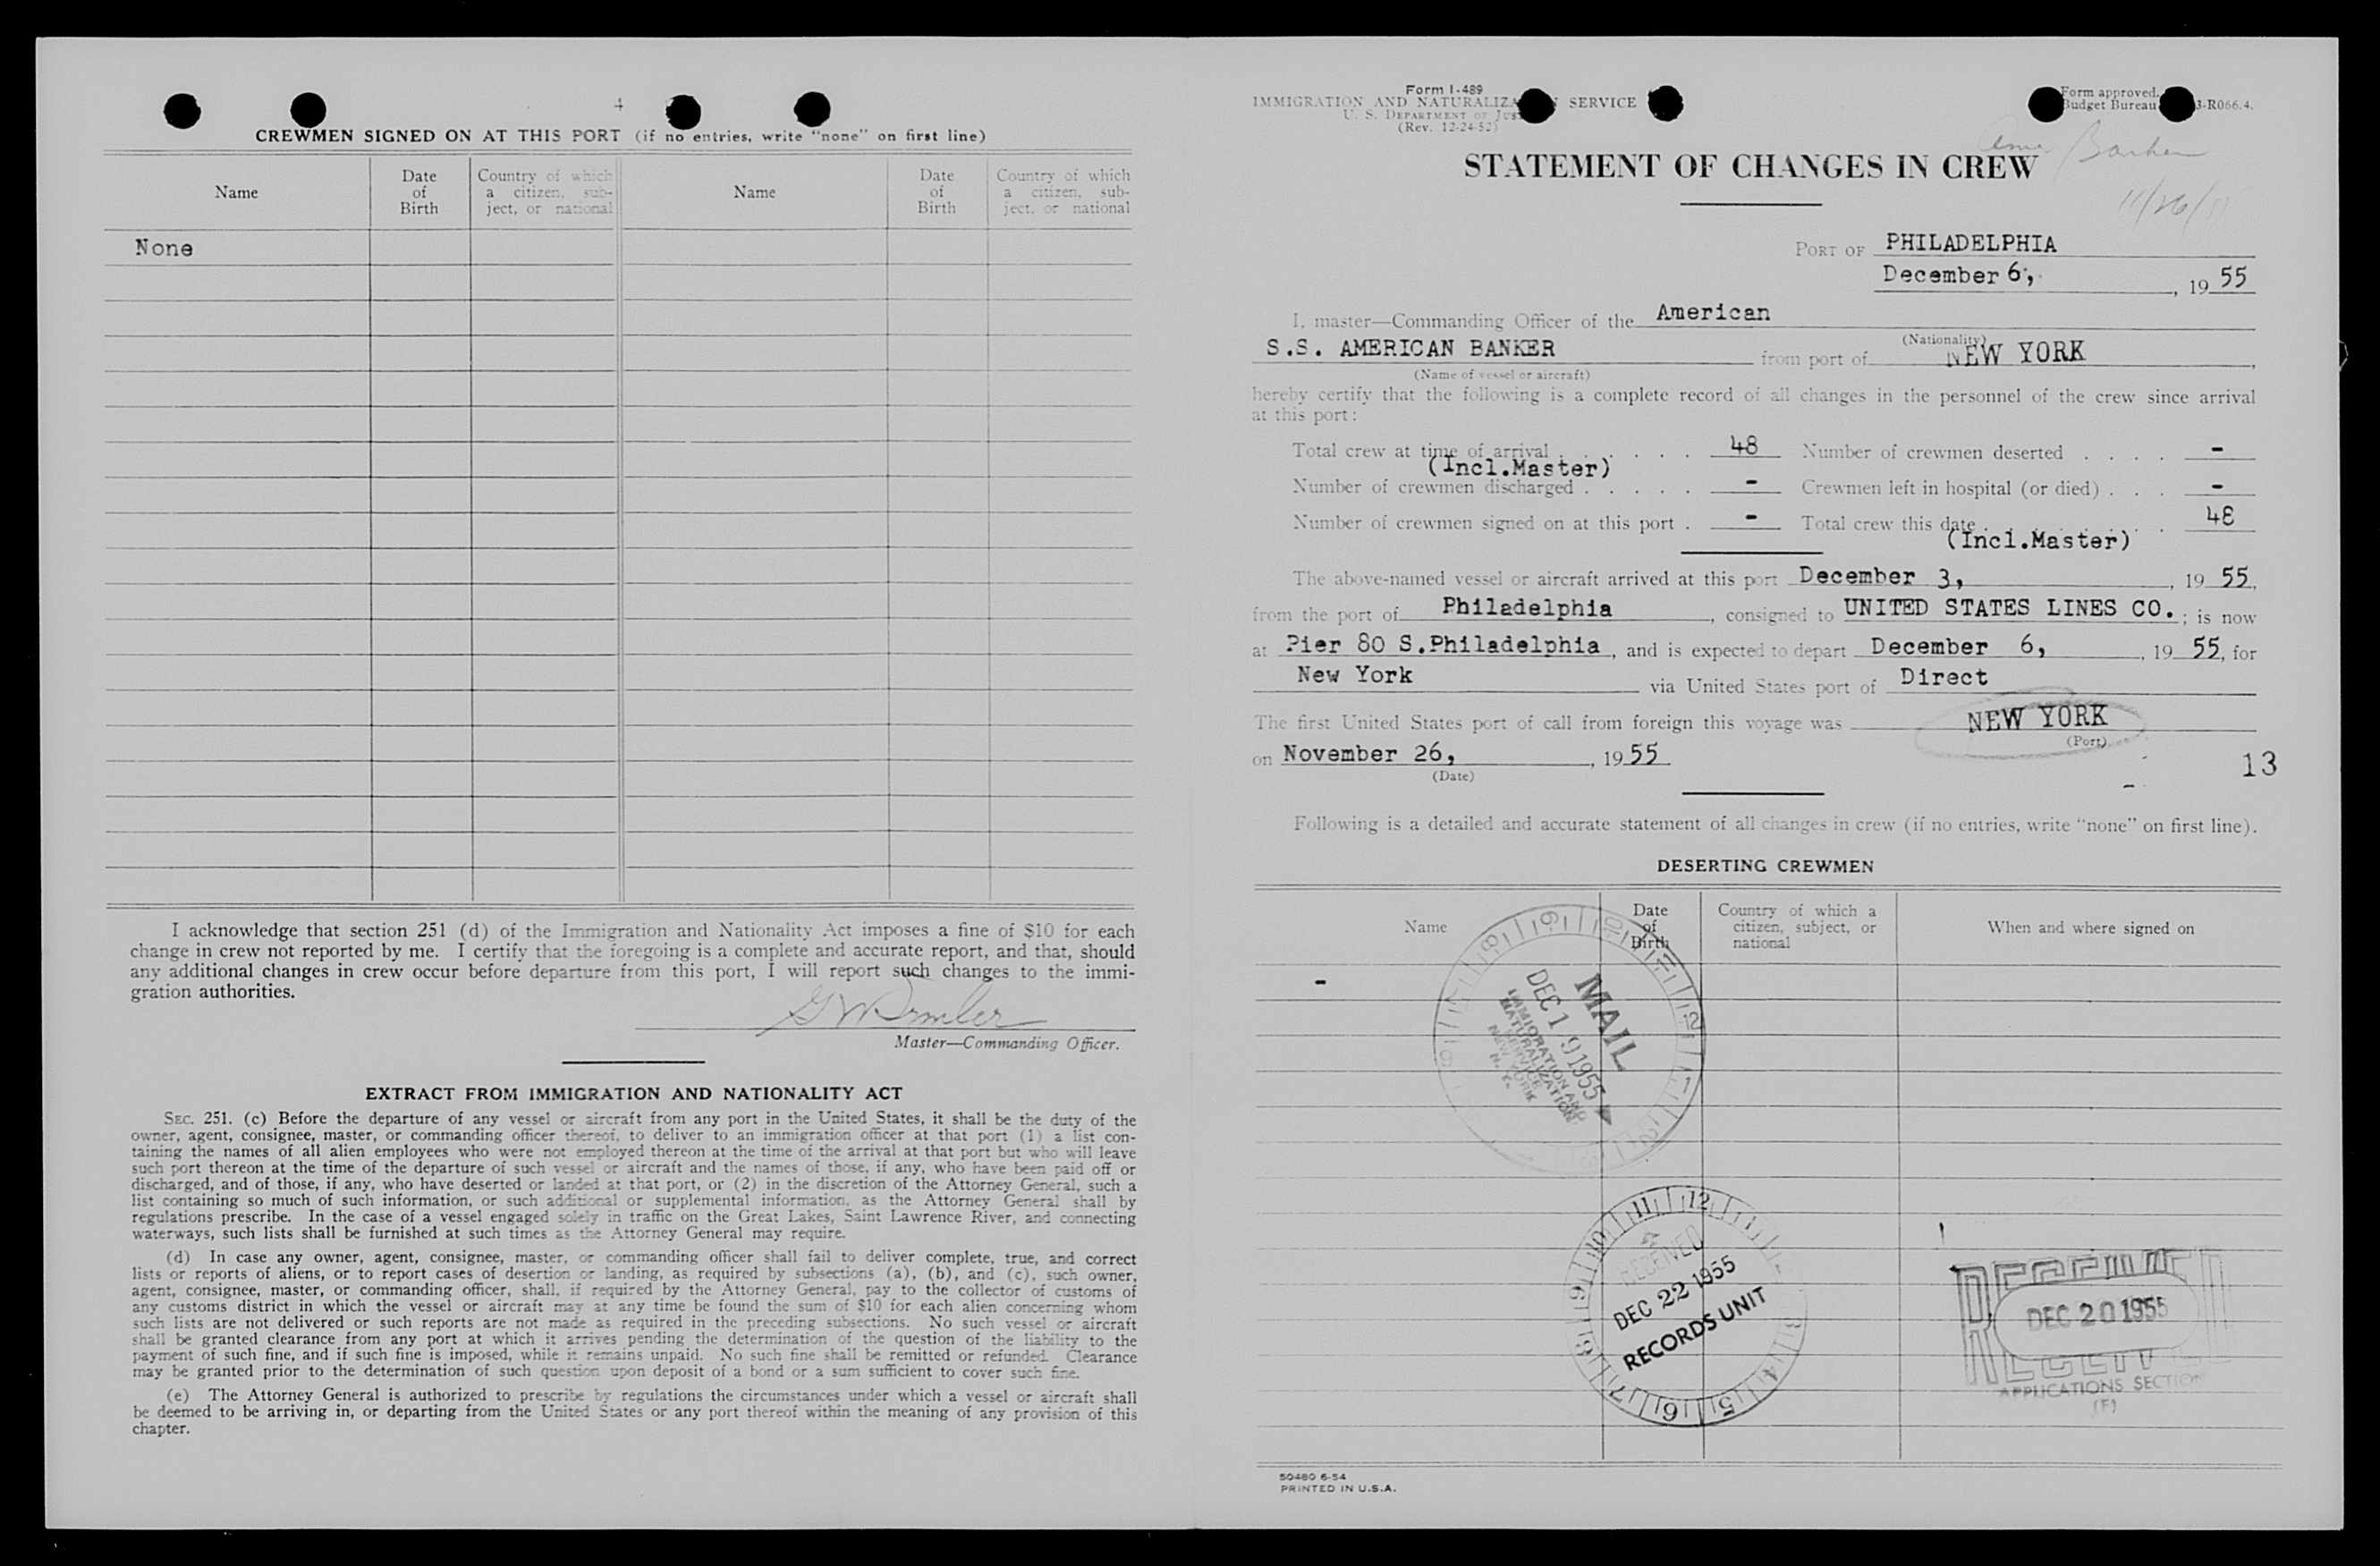 4
CREWMEN SIGNED ON AT THIS PORT (if no entries, write "none" on first line)
Name
Date of Birth
Country of which a citizen, sub-ject, or national
Name
Date of Birth
Country of which a citizen, sub-ject, or national
None
I acknowledge that section 251 (d) of the Immigration and Nationality Act imposes a fine of $10 for each
change in crew not reported by me. I certify that the foregoing is a complete and accurate report, and that, should
any additional changes in crew occur before departure from this port, I will report such changes to the immi-
gration authorities.
Master—Commanding Officer.
EXTRACT FROM IMMIGRATION AND NATIONALITY ACT
SEC. 251. (c) Before the departure of any vessel or aircraft from any port in the United States, it shall be the duty of the
owner, agent, consignee, master, or commanding officer thereof, to deliver to an immigration officer at that port (1) a list con-
taining the names of all alien employees who were not employed thereon at the time of the arrival at that port but who will leave
such port thereon at the time of the departure of such vessel or aircraft and the names of those, if any, who have been paid off or
discharged, and of those, if any, who have deserted or landed at that port, or (2) in the discretion of the Attorney General, such a
list containing so much of such information, or such additional or supplemental information, as the Attorney General shall by
regulations prescribe. In the case of a vessel engaged solely in traffic on the Great Lakes, Saint Lawrence River, and connecting
waterways, such lists shall be furnished at such times as the Attorney General may require.
(d) In case any owner, agent, consignee, master, or commanding officer shall fail to deliver complete, true, and correct
lists or reports of aliens, or to report cases of desertion or landing, as required by subsections (a), (b), and (c), such owner,
agent, consignee, master, or commanding officer, shall, if required by the Attorney General, pay to the collector of customs of
any customs district in which the vessel or aircraft may at any time be found the sum of $10 for each alien concerning whom
such lists are not delivered or such reports are not made as required in the preceding subsections. No such vessel or aircraft
shall be granted clearance from any port at which it arrives pending the determination of the question of the liability to the
payment of such fine, and if such fine is imposed, while it remains unpaid. No such fine shall be remitted or refunded. Clearance
may be granted prior to the determination of such question upon deposit of a bond or a sum sufficient to cover such fine.
(e) The Attorney General is authorized to prescribe by regulations the circumstances under which a vessel or aircraft shall
be deemed to be arriving in, or departing from the United States or any port thereof within the meaning of any provision of this
chapter.
Form I-489
IMMIGRATION AND SERVICE
U. S. DEPARTMENT OF
(Rev. 12-24-52)
Form approved.
Budget Bureau 3-R066.4.
Banker
11/26/
STATEMENT OF CHANGES IN CREW
PORT OF PHILADELPHIA
December 6, , 19 55
I, master—Commanding Officer of the American
(Nationality)
S.S. AMERICAN BANKER from port of NEW YORK ,
(Name of vessel or aircraft)
hereby certify that the following is a complete record of all changes in the personnel of the crew since arrival
at this port:
Total crew at time of arrival . . . . . . 48 Number of crewmen deserted . . . . -
(Incl.Master)
Number of crewmen discharged . . . . . - Crewmen left in hospital (or died) . . . -
Number of crewmen signed on at this port . - Total crew this date . . . . . . . . 48
(Incl.Master)
The above-named vessel or aircraft arrived at this port December 3, , 19 55,
from the port of Philadelphia , consigned to UNITED STATES LINES CO. ; is now
at Pier 80 S.Philadelphia , and is expected to depart December 6, , 19 55, for
New York via United States port of Direct
The first United States port of call from foreign this voyage was NEW YORK
(Port)
on November 26, , 19 55
(Date)
13
Following is a detailed and accurate statement of all changes in crew (if no entries, write "none" on first line).
DESERTING CREWMEN
Name
Date of Birth
Country of which a citizen, subject, or national
When and where signed on
-
MAIL
DEC 19 1955
IMMIGRATION AND
NATURALIZATION
SERVICE
NEW YORK
N. Y.
RECEIVED
DEC 22 1955
RECORDS UNIT
RECEIVED
DEC 20 1955
APPLICATIONS SECTION
(F)
50480 6-54
PRINTED IN U.S.A.